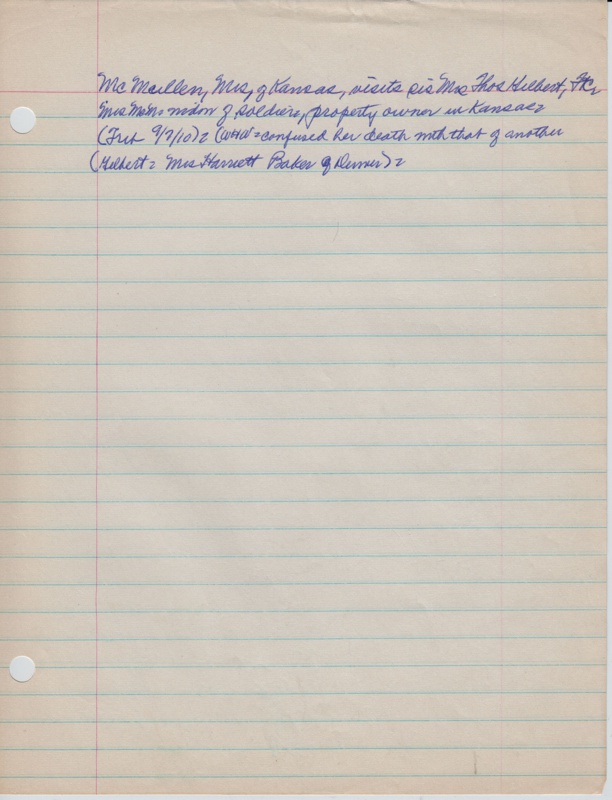 McMullen, Mrs, of Kansas, visits sis Mrs Thos Gilbert,
Mrs McM= widow of soldier, property owner in Kansas=
(Trib 9/7/10)= (WHW= confused her death with that of another
(Gilbert= Mrs Harriett Baker of Denver)=